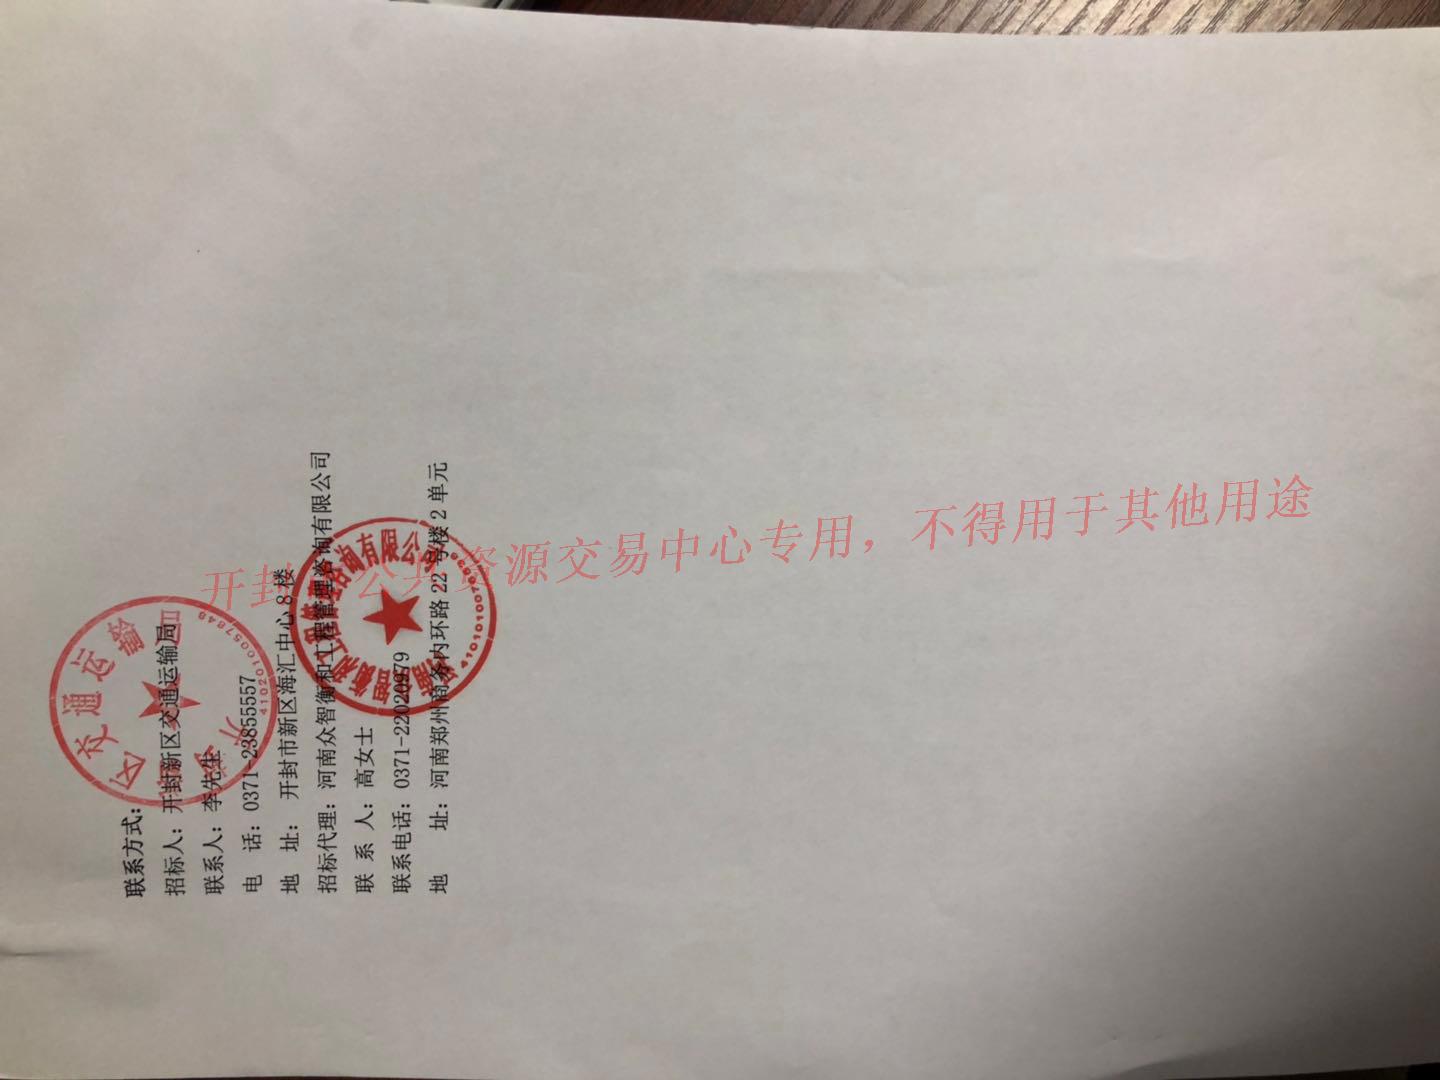 联系方式：
招标人：开封新区交通运输局
联系人：李先生
电 话：0371-23855557
地 址： 开封市新区海汇中心 8 楼
招标代理：河南众智衡和工程管理咨询有限公司
联 系 人：高女士
联系电话：0371-22020979
地 址：河南郑州商务内环路 22 号楼 2 单元
开封市公共资源交易中心专用，不得用于其他用途
区交通运输
4102010057848
工程管理咨询有限公